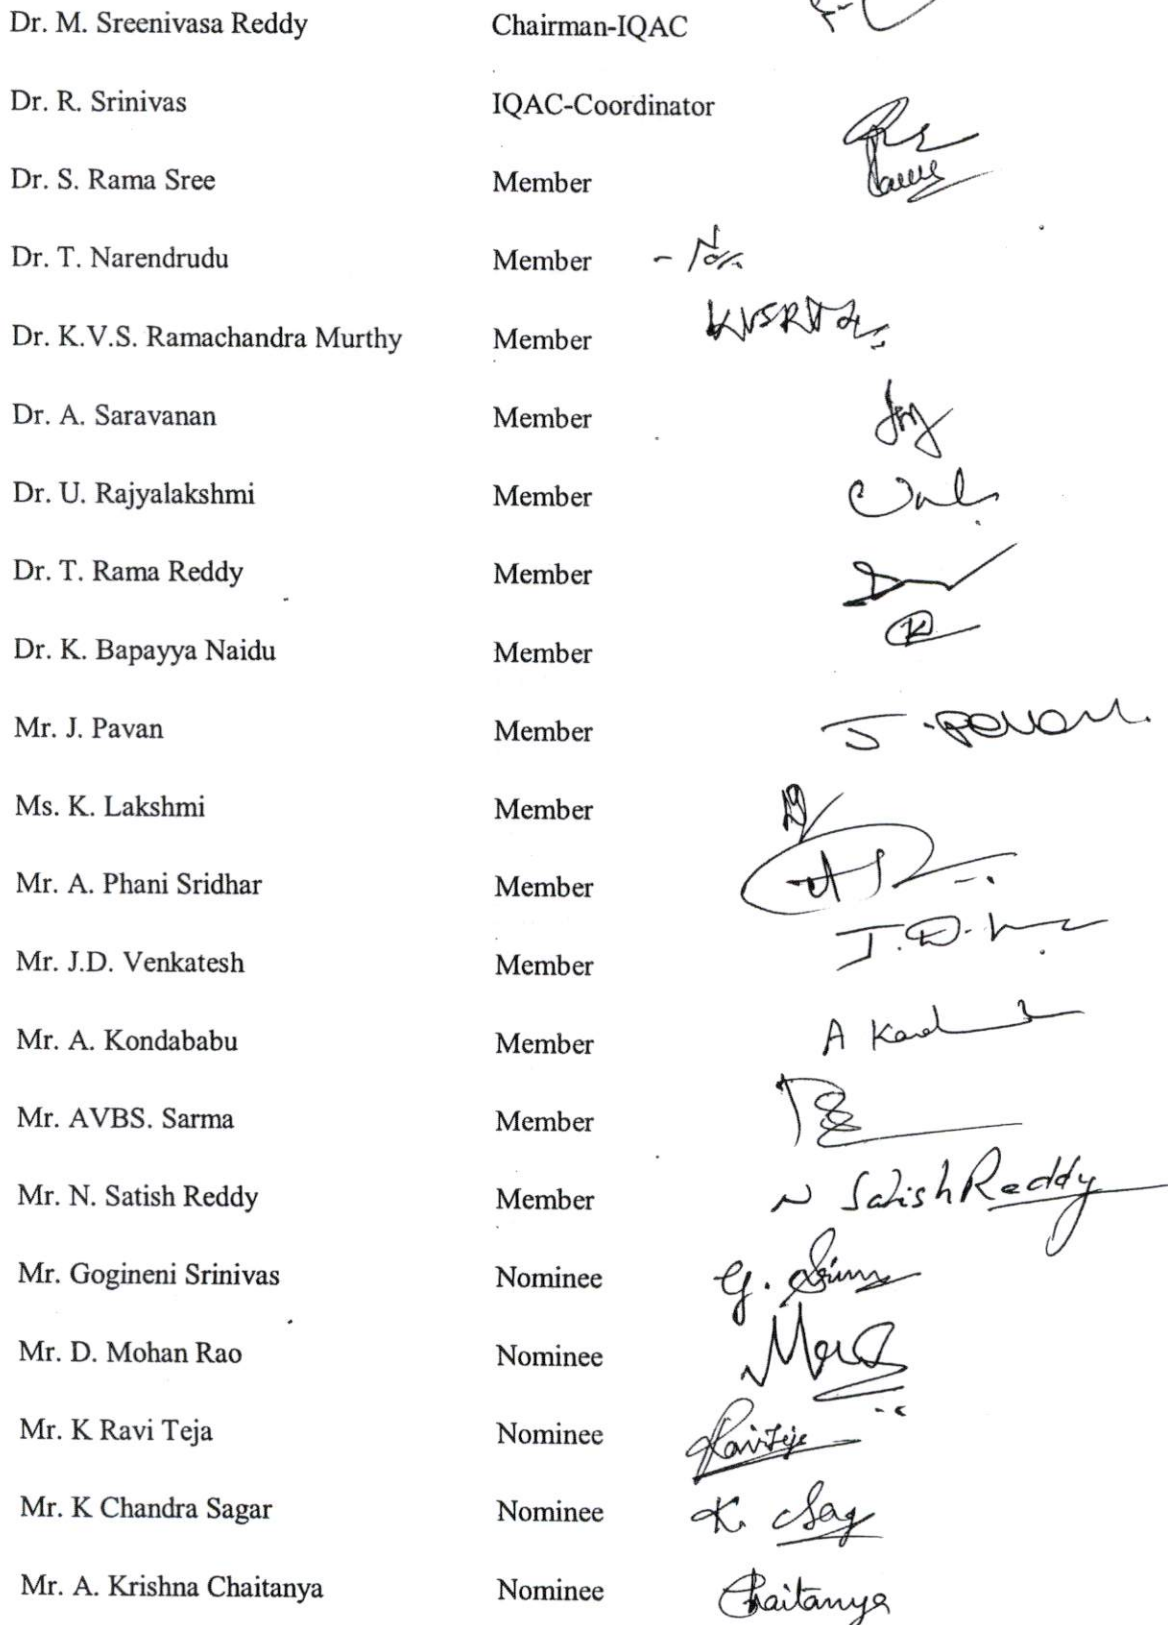 Dr. M. Sreenivasa Reddy Chairman-IQAC
Dr. R. Srinivas IQAC-Coordinator
Dr. S. Rama Sree Member
Dr. T. Narendrudu Member
Dr. K.V.S. Ramachandra Murthy Member
Dr. A. Saravanan Member
Dr. U. Rajyalakshmi Member
Dr. T. Rama Reddy Member
Dr. K. Bapayya Naidu Member
Mr. J. Pavan Member J. Pavan.
Ms. K. Lakshmi Member
Mr. A. Phani Sridhar Member
Mr. J.D. Venkatesh Member J.D.
Mr. A. Kondababu Member A
Mr. AVBS. Sarma Member
Mr. N. Satish Reddy Member N Satish Reddy
Mr. Gogineni Srinivas Nominee G.
Mr. D. Mohan Rao Nominee
Mr. K Ravi Teja Nominee Raviteja
Mr. K Chandra Sagar Nominee K. Sag
Mr. A. Krishna Chaitanya Nominee Chaitanya